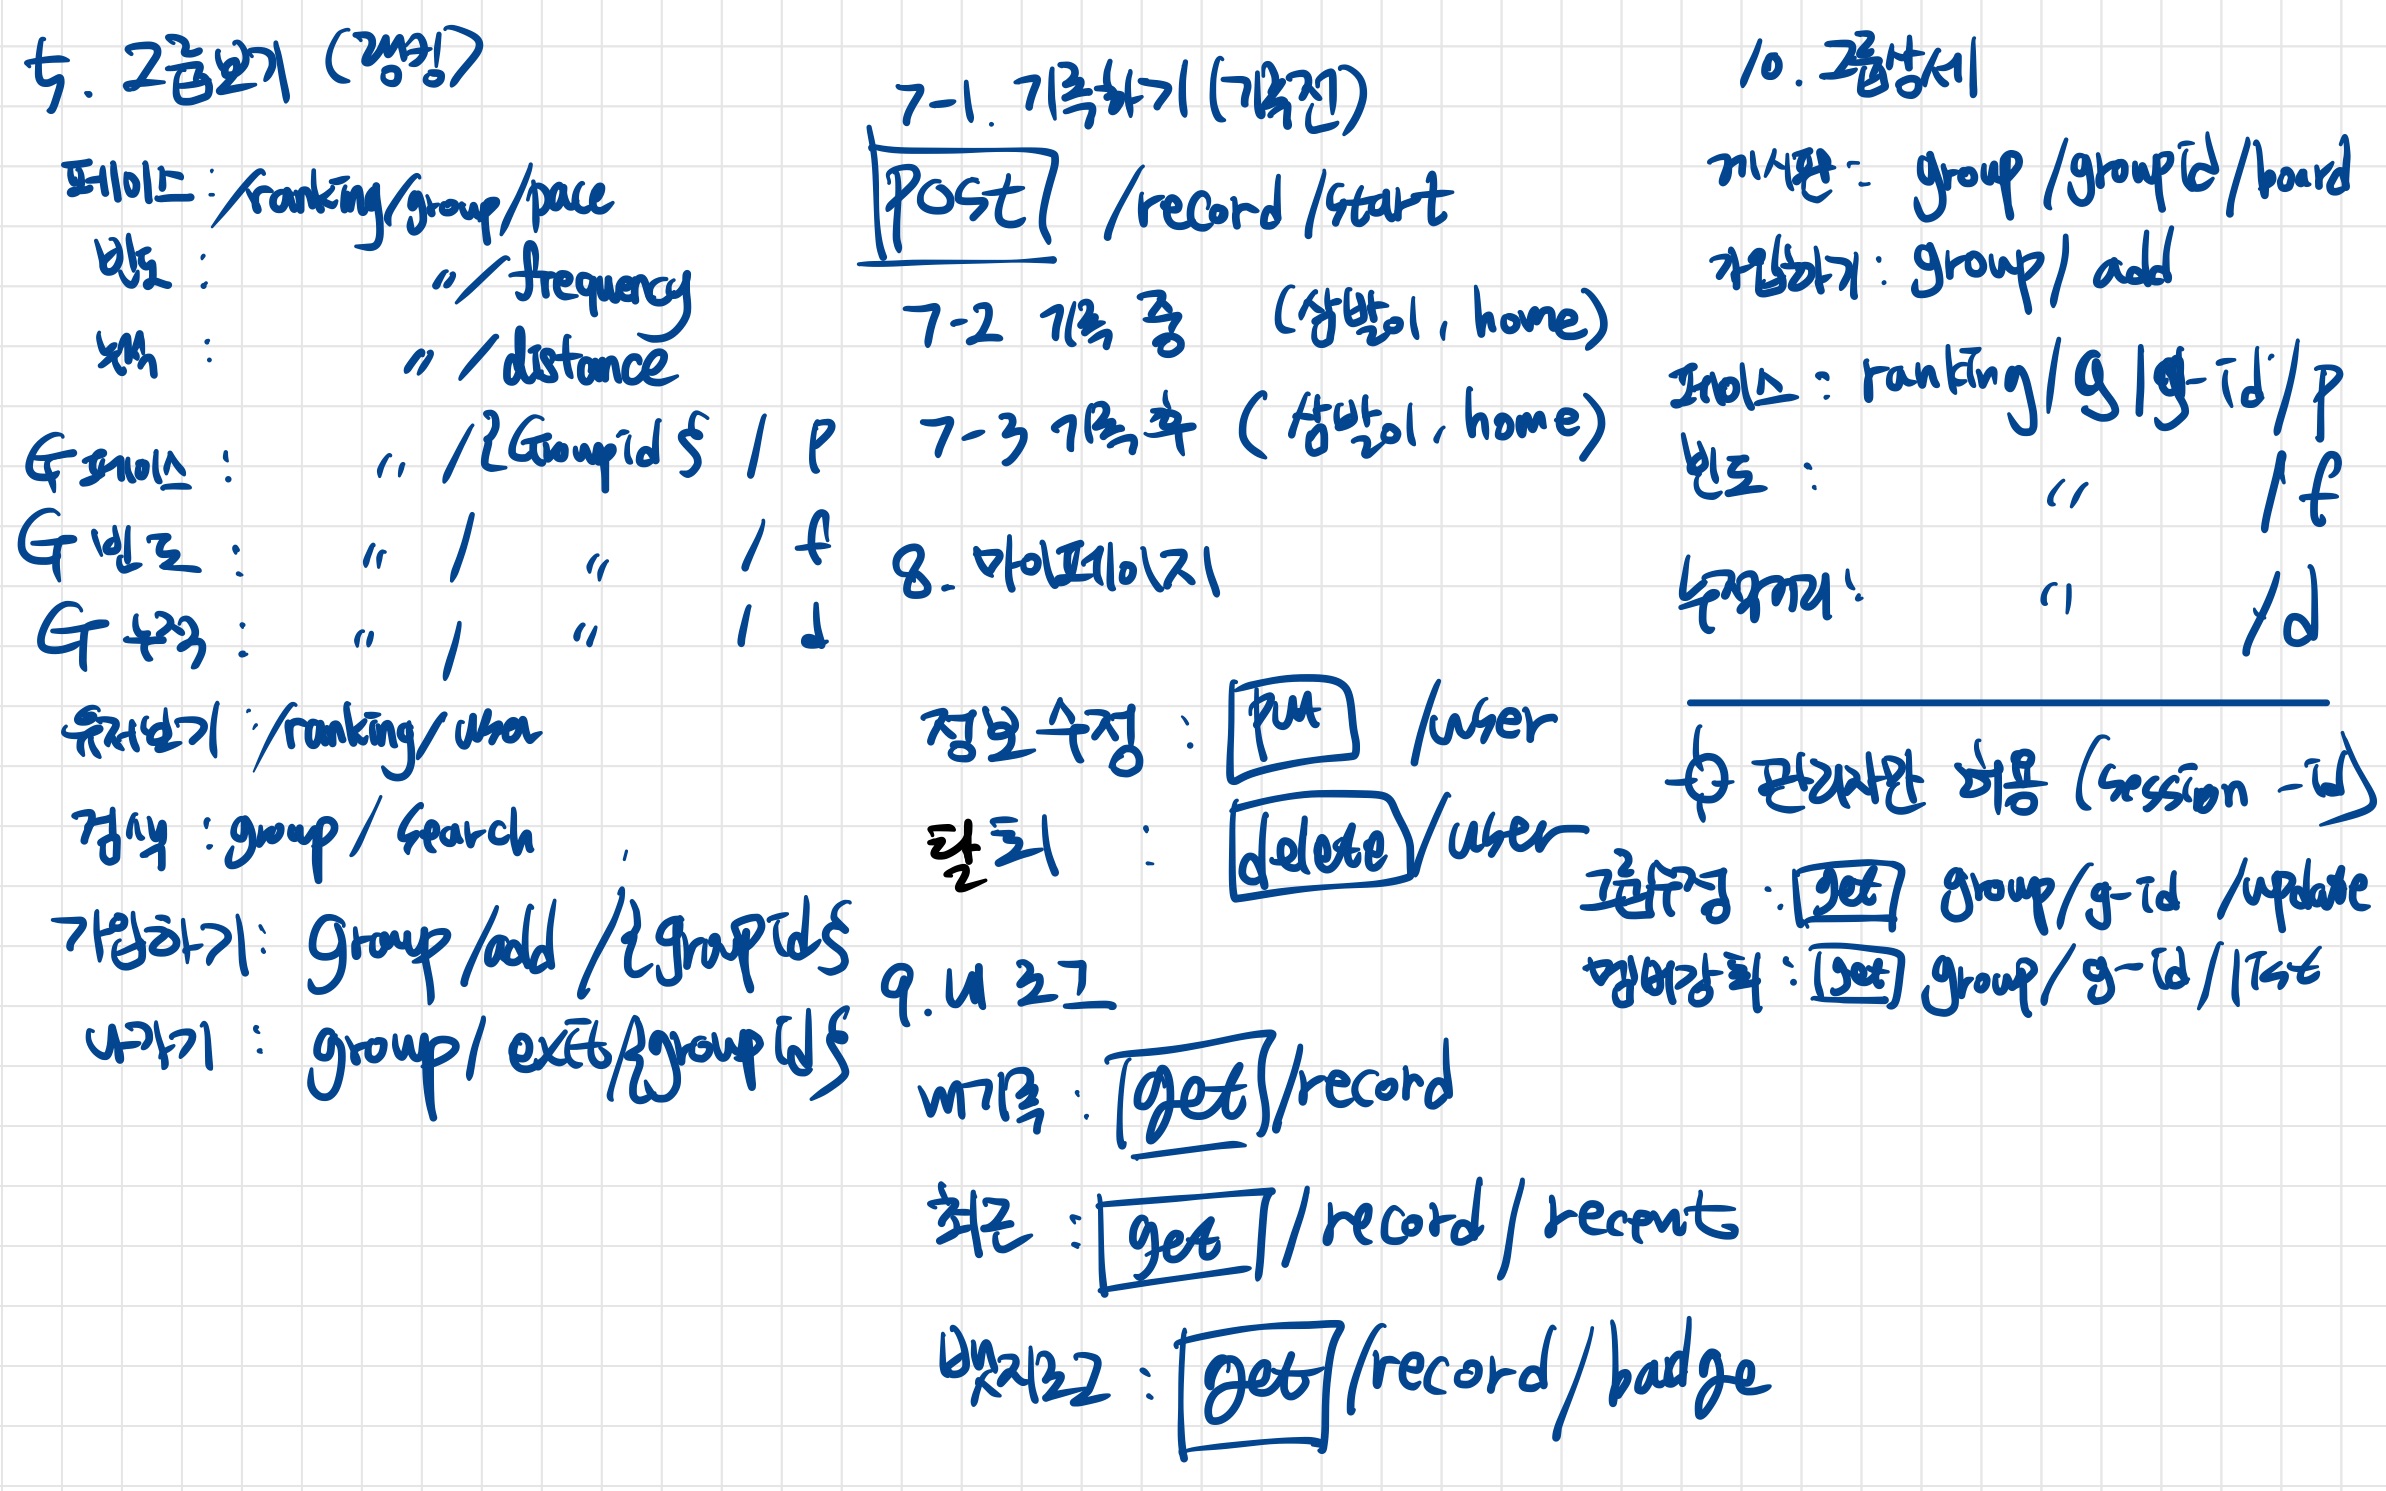 5. 그룹보기 (랭킹)
페이스 : /ranking/group/pace
빈도 : 〃 /frequency
누적 : 〃 /distance
G 페이스 : 〃 /{Groupid} / P
G 빈도 : 〃 / 〃 / f
G 누적 : 〃 / 〃 / d
유저보기 : /ranking/user
검색 : group / search
가입하기 : group /add /{groupid}
나가기 : group/ exit/{groupid}
7-1. 기록하기 (기록전)
Post /record/start
7-2 기록 중 ( , home)
7-3 기록 후 ( , home)
8. 마이페이지
정보수정 : Put /user
탈퇴 : delete /user
9. 내 로그
내기록 : get /record
최근 : get /record/recent
뱃지로그 : get /record/badge
10. 그룹상세
게시판 : group /groupid/board
가입하기 : group/ add
페이스 : ranking/ g/g-id /p
빈도 : 〃 /f
누적거리 : 〃 /d
관리자만 허용 (session-id)
그룹수정 : get group/g-id /update
명단조회 : get group/g-id/list